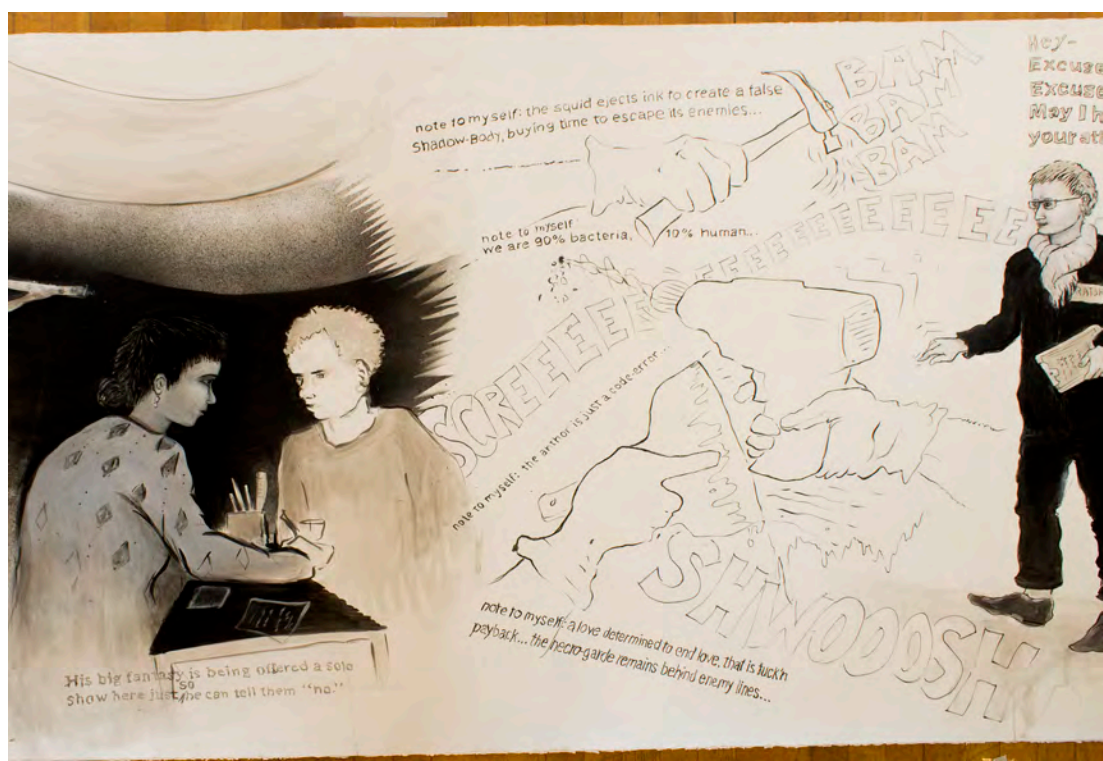 note to myself: the squid ejects ink to create a false
Shadow-Body, buying time to escape its enemies...
BAM
BAM
BAM
Hey-
Excuse
Excuse
May I h
your att
note to myself
we are 90% bacteria, 10% human...
SCREEEEEEEEEEEEEEE
note to myself: the author is just a code-error...
SHWOOOSH
note to myself: a love determined to end love, that is fuck'n
payback... the necro-garde remains behind enemy lines...
His big fantasy is being offered a solo
show here just so he can tell them "no."